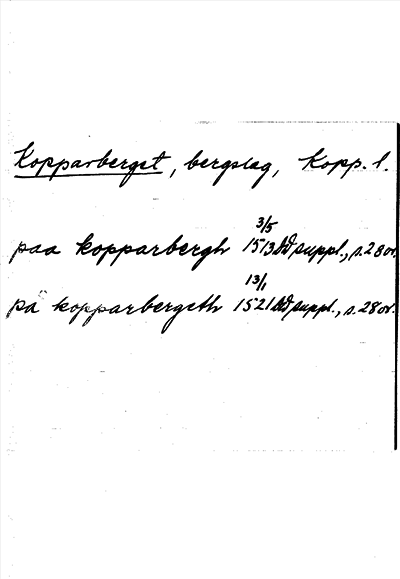 Kopparberget, bergslag, Kopp. l.
3/5
paa kopparbergh 1513 DD suppl., s. 28 or.
13/1
på kopparbergeth 1521 DD suppl., s. 28 or.